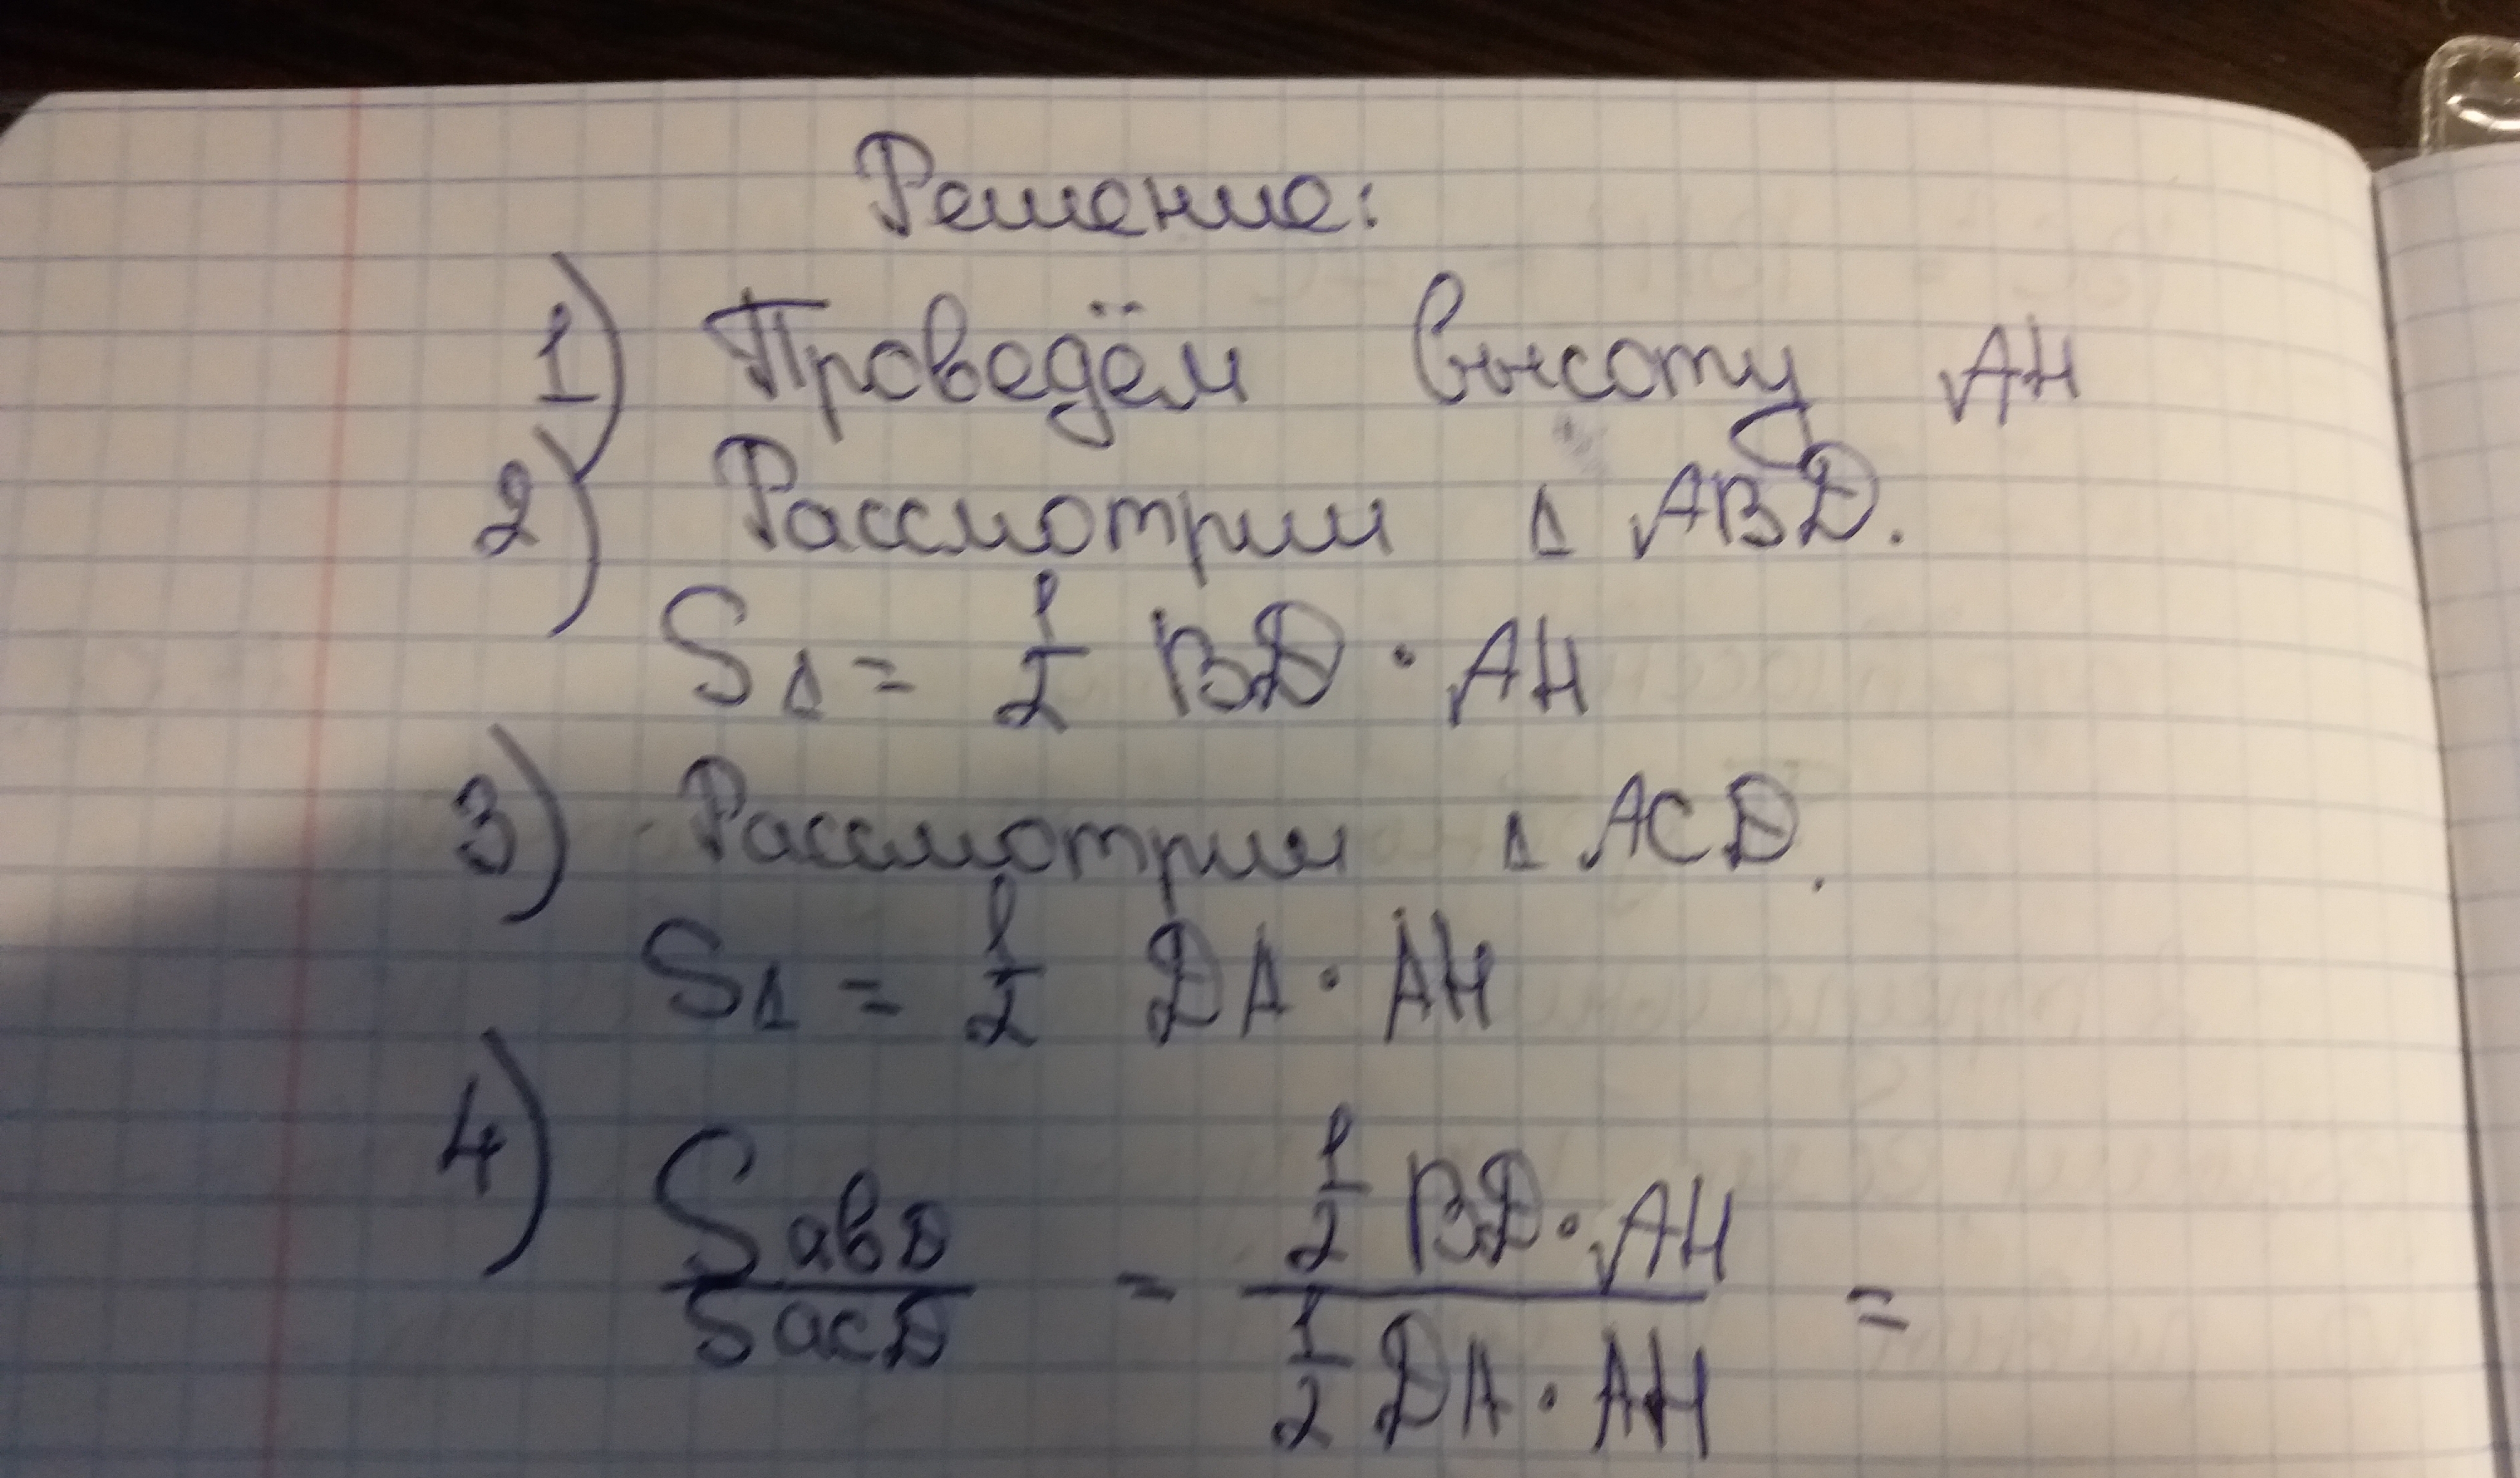 Решение:
1) Проведём высоту AH
2) Рассмотрим Δ ABD.
SΔ = 1/2 BD · AH
3) Рассмотрим Δ ACD.
SΔ = 1/2 DA · AH
4) Sabd/Sacd = 1/2 BD · AH / 1/2 DA · AH =